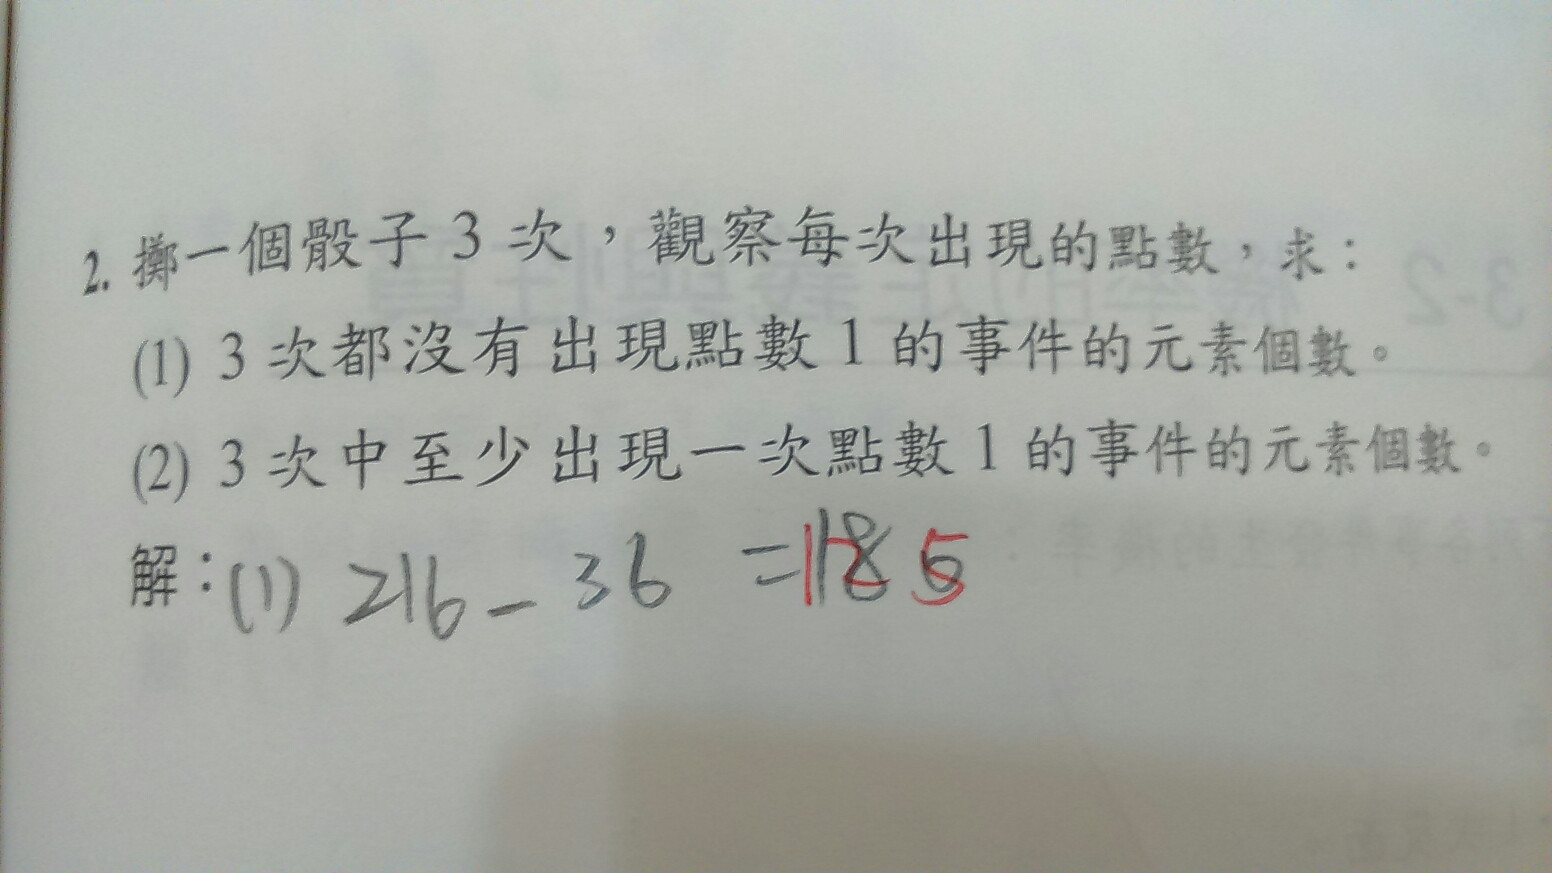 2. 擲一個骰子 3 次，觀察每次出現的點數，求：
(1) 3 次都沒有出現點數 1 的事件的元素個數。
(2) 3 次中至少出現一次點數 1 的事件的元素個數。
解：(1) 216 - 36 =